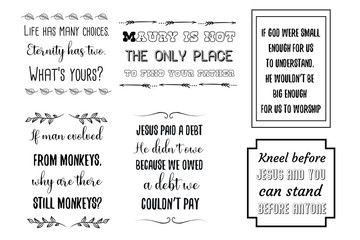 LIFE HAS MANY CHOICES.
Eternity has two.
WHAT'S YOURS?
MAURY IS NOT
THE ONLY PLACE
TO FIND YOUR FATHER
IF GOD WERE SMALL
ENOUGH FOR US
TO UNDERSTAND,
HE WOULDN'T BE
BIG ENOUGH
FOR US TO WORSHIP
If man evolved
FROM MONKEYS,
why are there
STILL MONKEYS?
JESUS PAID A DEBT
He didn't owe
BECAUSE WE OWED
a debt we
COULDN'T PAY
Kneel before
JESUS AND YOU
can stand
BEFORE ANYONE